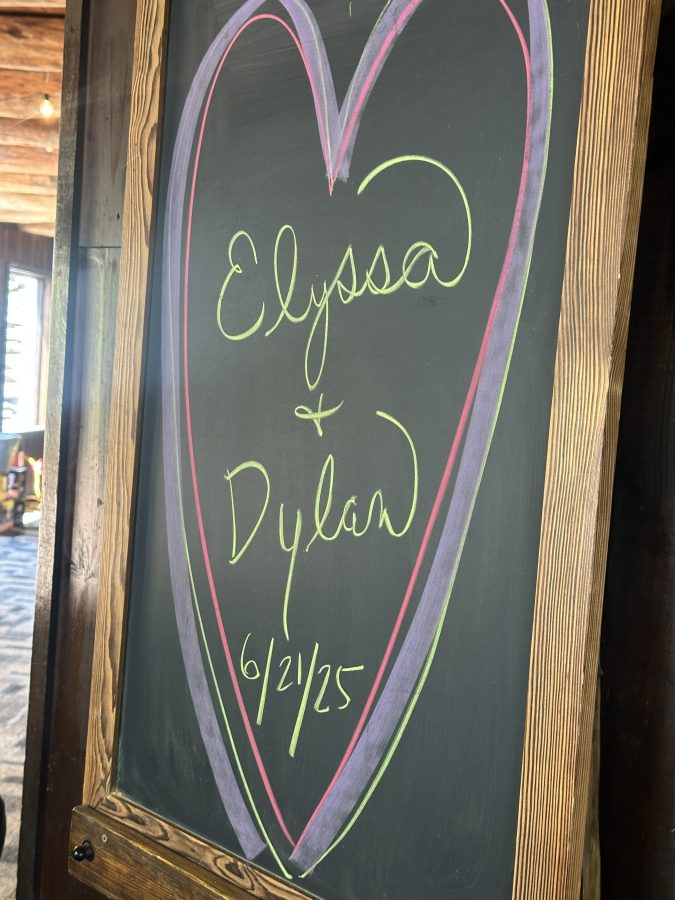 Elyssa
+
Dylan
6/21/25